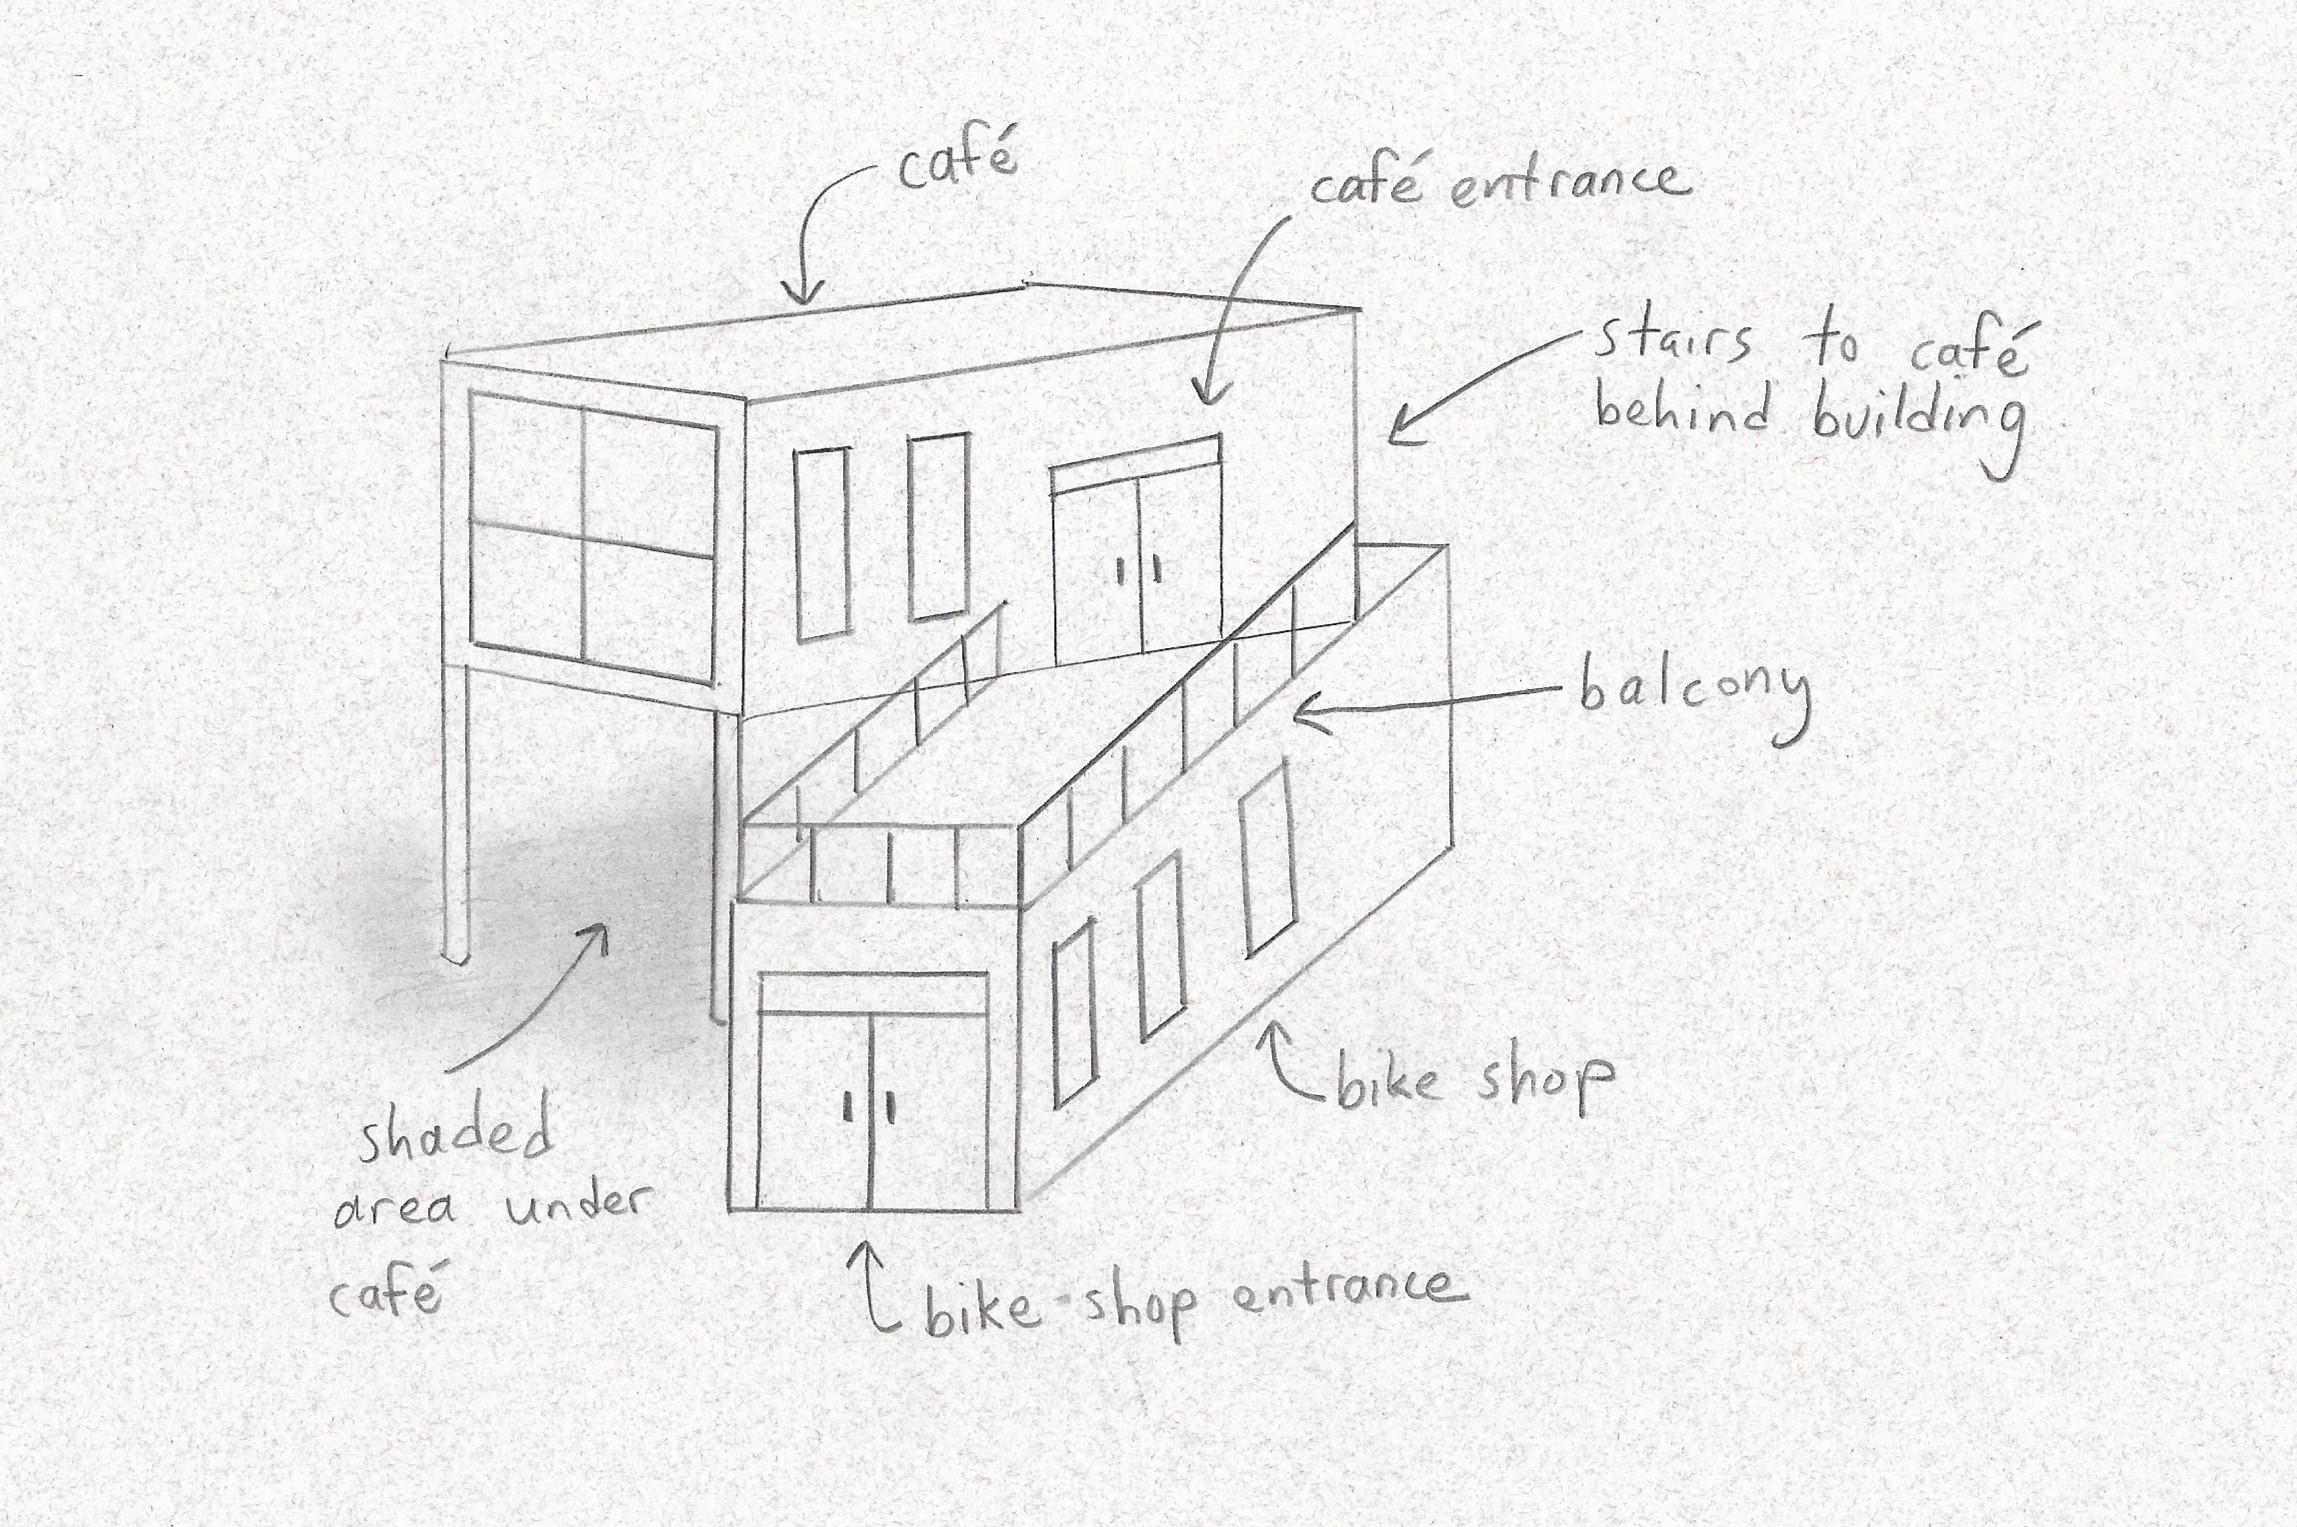 café
café entrance
stairs to café
behind building
balcony
bike shop
shaded
area under
café
bike shop entrance